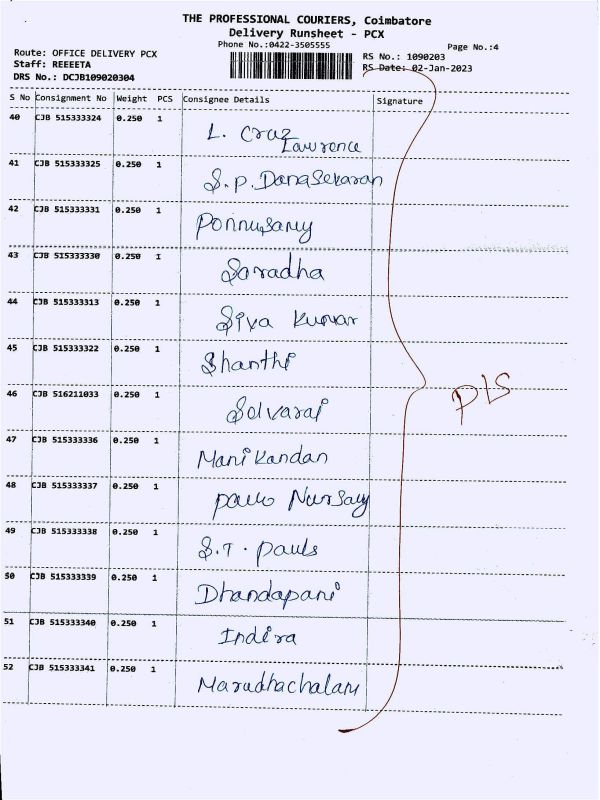 THE PROFESSIONAL COURIERS, Coimbatore
Delivery Runsheet - PCX
Phone No.:0422-3505555
Page No.:4
Route: OFFICE DELIVERY PCX
RS No.: 1090203
Staff: REEEETA
RS Date: 02-Jan-2023
DRS No.: DCJB109020304
S No Consignment No Weight PCS Consignee Details Signature
40 CJB 515333324 0.250 1 L. Cruz
Lawrence
41 CJB 515333325 0.250 1 S.P. Danasekaran
42 CJB 515333331 0.250 1 Ponnusamy
43 CJB 515333330 0.250 1 Saradha
44 CJB 515333313 0.250 1 Siva Kumar
45 CJB 515333322 0.250 1 Shanthi
46 CJB 516211033 0.250 1 Selvaraj
PLS
47 CJB 515333336 0.250 1 Manikandan
48 CJB 515333337 0.250 1
49 CJB 515333338 0.250 1 S.T. Pauls
50 CJB 515333339 0.250 1 Dhandapani
51 CJB 515333340 0.250 1 Indira
52 CJB 515333341 0.250 1 Marudhachalam